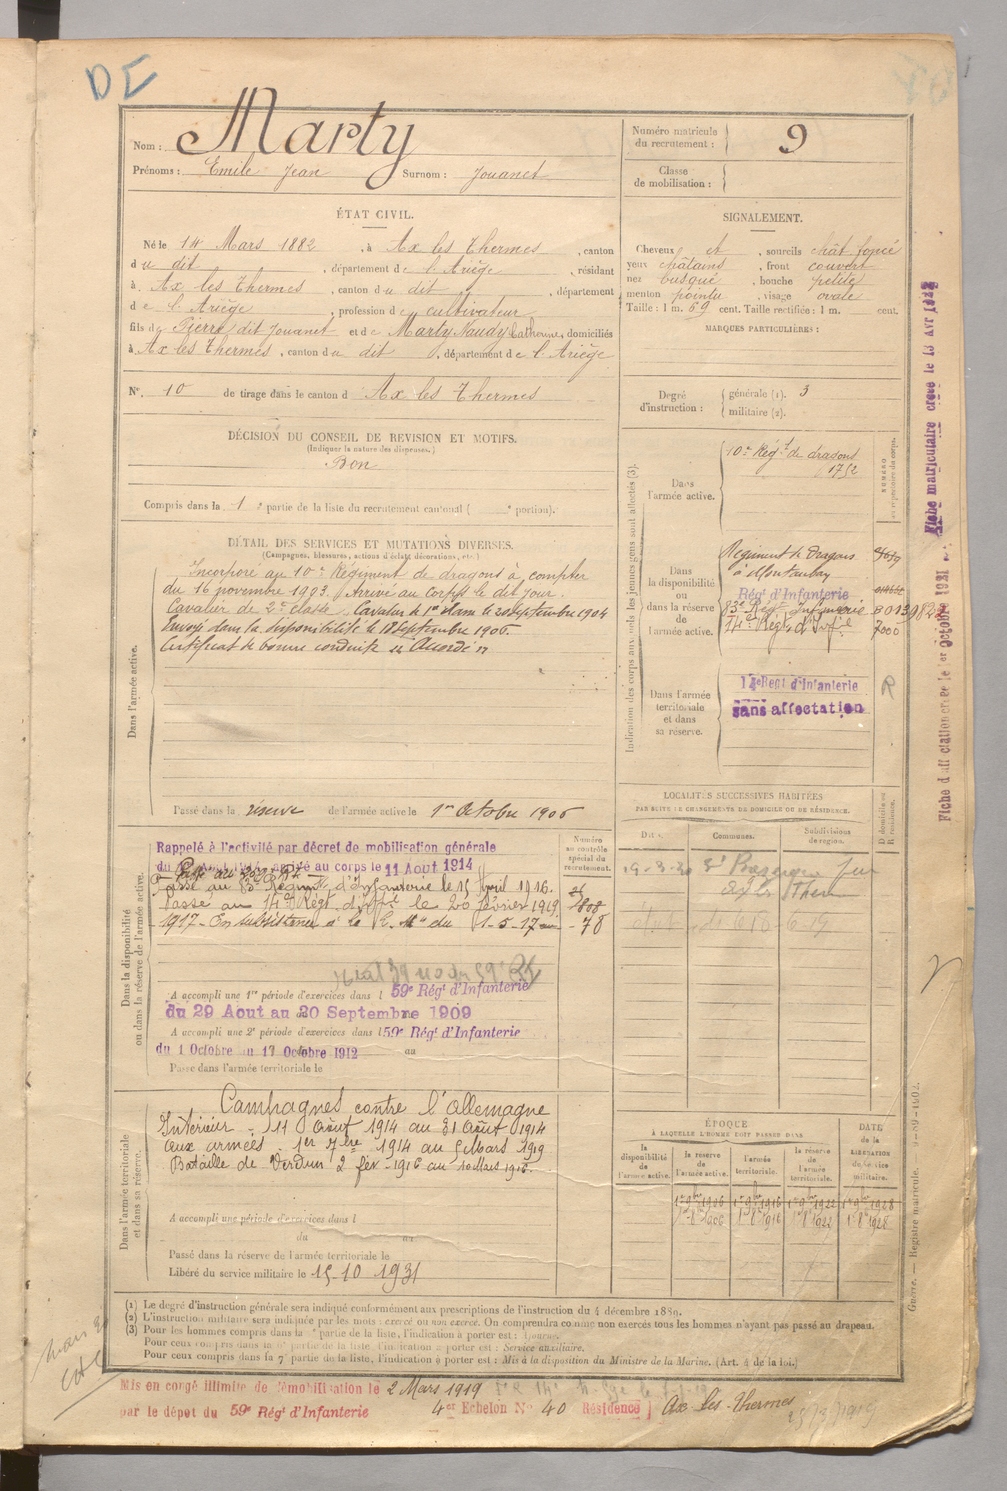 DC
Nom : Marty
Prénoms : Emile Jean Surnom : Jouanet
Numéro matricule du recrutement : 9
Classe de mobilisation :
ÉTAT CIVIL.
Né le 14 Mars 1882, à Ax les Thermes, canton
du dit, département de l'Ariège, résidant
à Ax les Thermes, canton du dit, département
de l'Ariège, profession de cultivateur
fils de Pierre dit Jouanet et de Marty Naudy Catherine, domiciliés
à Ax les Thermes, canton du dit, département de l'Ariège
N° 10 de tirage dans le canton d Ax les Thermes
SIGNALEMENT.
Cheveux et, sourcils chât foncé
yeux châtains, front couvert
nez busqué, bouche petite
menton pointu, visage ovale
Taille : 1 m. 69 cent. Taille rectifiée : 1 m. cent.
MARQUES PARTICULIÈRES :
Degré d'instruction : générale (1). 3
militaire (2).
DÉCISION DU CONSEIL DE REVISION ET MOTIFS.
(Indiquer la nature des dispenses.)
Bon
Compris dans la 1e partie de la liste du recrutement cantonal ( e portion).
DÉTAIL DES SERVICES ET MUTATIONS DIVERSES.
(Campagnes, blessures, actions d'éclat, décorations, etc.)
Dans l'armée active.
Incorporé au 10e Régiment de dragons à compter
du 16 novembre 1903. Arrivé au corps le dit jour.
Cavalier de 2e classe. Cavalier de 1re classe le 20 septembre 1904
Envoyé dans la disponibilité le 18 septembre 1906.
Certificat de bonne conduite "Accordé"
Passé dans la réserve de l'armée active le 1er Octobre 1906
Indication des corps auxquels les jeunes gens sont affectés (3).
Dans l'armée active.
10e Régt de dragons
1752
Dans la disponibilité ou dans la réserve de l'armée active.
Régiment de Dragons
à Montauban
Régt d'Infanterie
83e Régt Infanterie
14e Régt d'Infie
7000
Dans l'armée territoriale et dans sa réserve.
14e Régt d'Infanterie
sans affectation
R
Fiche matriculaire créée le 13 avr
Fiche d'affectation créée le 1er Octobre 1921
LOCALITÉS SUCCESSIVES HABITÉES
PAR SUITE DE CHANGEMENTS DE DOMICILE OU DE RÉSIDENCE.
Dates. Communes. Subdivisions de région. D domicile ou R résidence.
Dans la disponibilité ou dans la réserve de l'armée active.
Numéro au contrôle spécial du recrutement.
Rappelé à l'activité par décret de mobilisation générale
arrivé au corps le 11 Aout 1914
Passé au 83e Régiment d'Infanterie le 15 Avril 1916.
Passé au 14e Régt d'Infie le 20 février 1919.
A accompli une 1re période d'exercices dans l 59e Régt d'Infanterie
du 29 Aout au 20 Septembre 1909
A accompli une 2e période d'exercices dans l 59e Régt d'Infanterie
du 1 Octobre au 17 Octobre 1912 au
Passé dans l'armée territoriale le
Dans l'armée territoriale et dans sa réserve.
Campagnes contre l'Allemagne
Intérieur - 11 Août 1914 au 31 Août 1914
Aux armées - 1er 7bre 1914 au 5 Mars 1919
Bataille de Verdun 2 fév - 1916 au 10 Mars 1916.
A accompli une période d'exercices dans l
du au
Passé dans la réserve de l'armée territoriale le
Libéré du service militaire le 15-10 1931
ÉPOQUE
À LAQUELLE L'HOMME DOIT PASSER DANS
la disponibilité de l'armée active.
la réserve de l'armée active.
l'armée territoriale.
la réserve de l'armée territoriale.
DATE de la LIBÉRATION du service militaire.
1er 9bre 1906 1er 9bre 1916 1er 9bre 1922 1er 9bre 1928
1er 8bre 1906 1er 8bre 1916 1er 8bre 1922 1er 8bre 1928
Guerre. — Registre matricule.
(1) Le degré d'instruction générale sera indiqué conformément aux prescriptions de l'instruction du 4 décembre 1889.
(2) L'instruction militaire sera indiquée par les mots : exercé ou non exercé. On comprendra comme non exercés tous les hommes n'ayant pas passé au drapeau.
(3) Pour les hommes compris dans la e partie de la liste, l'indication à porter est :
Pour ceux compris dans la e partie de la liste, l'indication à porter est : Service auxiliaire.
Pour ceux compris dans la 7e partie de la liste, l'indication à porter est : Mis à la disposition du Ministre de la Marine. (Art. 4 de la loi.)
Mis en congé illimité de démobilisation le 2 Mars 1919
par le dépôt du 59e Régt d'Infanterie 4er Echelon N° 40 Résidence Ax-les-Thermes